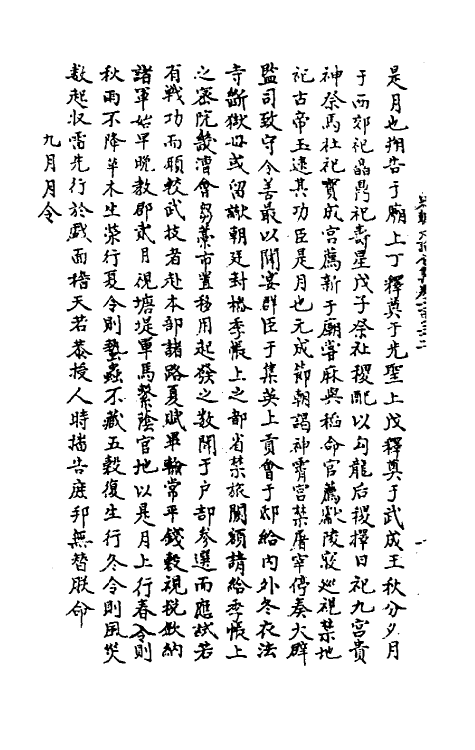 是月也朔告于廟上丁釋奠于先聖上戊釋奠于武成王秋分夕月
于西郊祀畾鬯祀壽星戊子祭社稷配以勾龍后稷擇日祀九宮貴
神祭馬社祀寳成宮薦新于廟寺麻與稻命官薦獻陵寢廵視禁地
祀古帝王逮其功臣是月也元成節朝謁神霄宮禁屠宰停奏大辟
監司致守令善最以聞宴群臣于集英上貢會于邸給内外冬衣法
寺斷獄毋或留讞朝廷封樁季帳上之都省禁旅闕額請給季帳上
之密院發漕會芻藁市置移用起發之数聞于户部参選而應試若
有戰功而願較武技者赴本部諸路夏賦畢輸常平錢穀視稅歛納
諸軍始早晚教郡貳月視塘堤軍馬繫䕃官地以是月上行春令則
秋雨不降草木生榮行夏令則蟄蟲不藏五穀復生行冬令則風災
数起收雷先行於戲面稽天若恭授人時播告庶邦無替朕命
九月月令